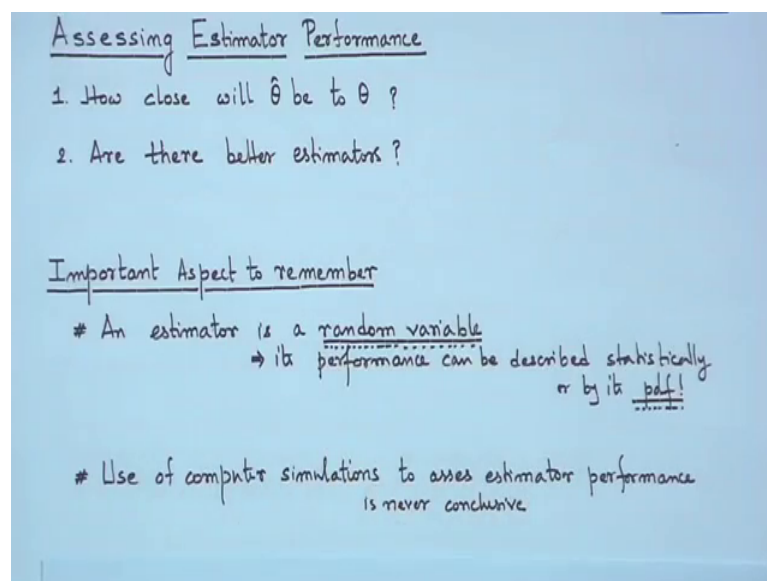 Assessing Estimator Performance
1. How close will θ̂ be to θ ?
2. Are there better estimators ?
Important Aspect to remember
# An estimator is a random variable
→ its performance can be described statistically
or by its pdf!
# Use of computer simulations to asses estimator performance
is never conclusive